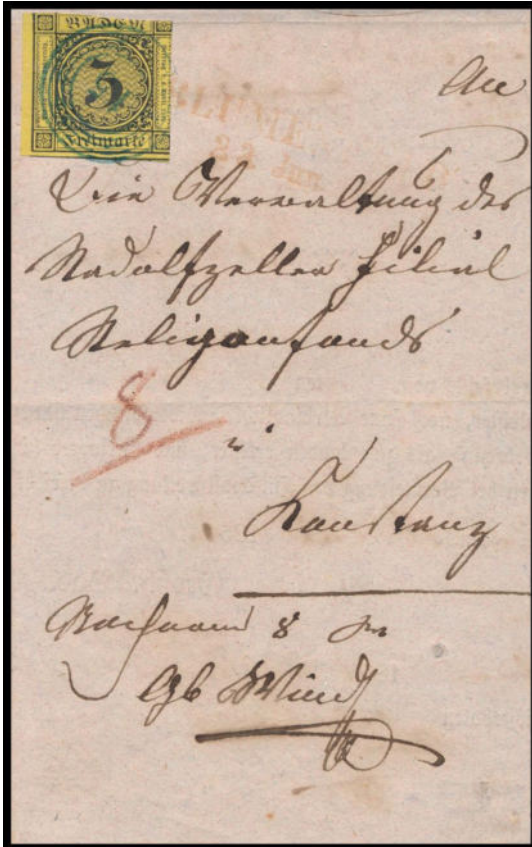 BADEN
3
Freimarke
22 Jun
An
Die Verwaltung des
Radolfzeller Filial
Religionsfonds
8
in
Konstanz
Nachnam 8